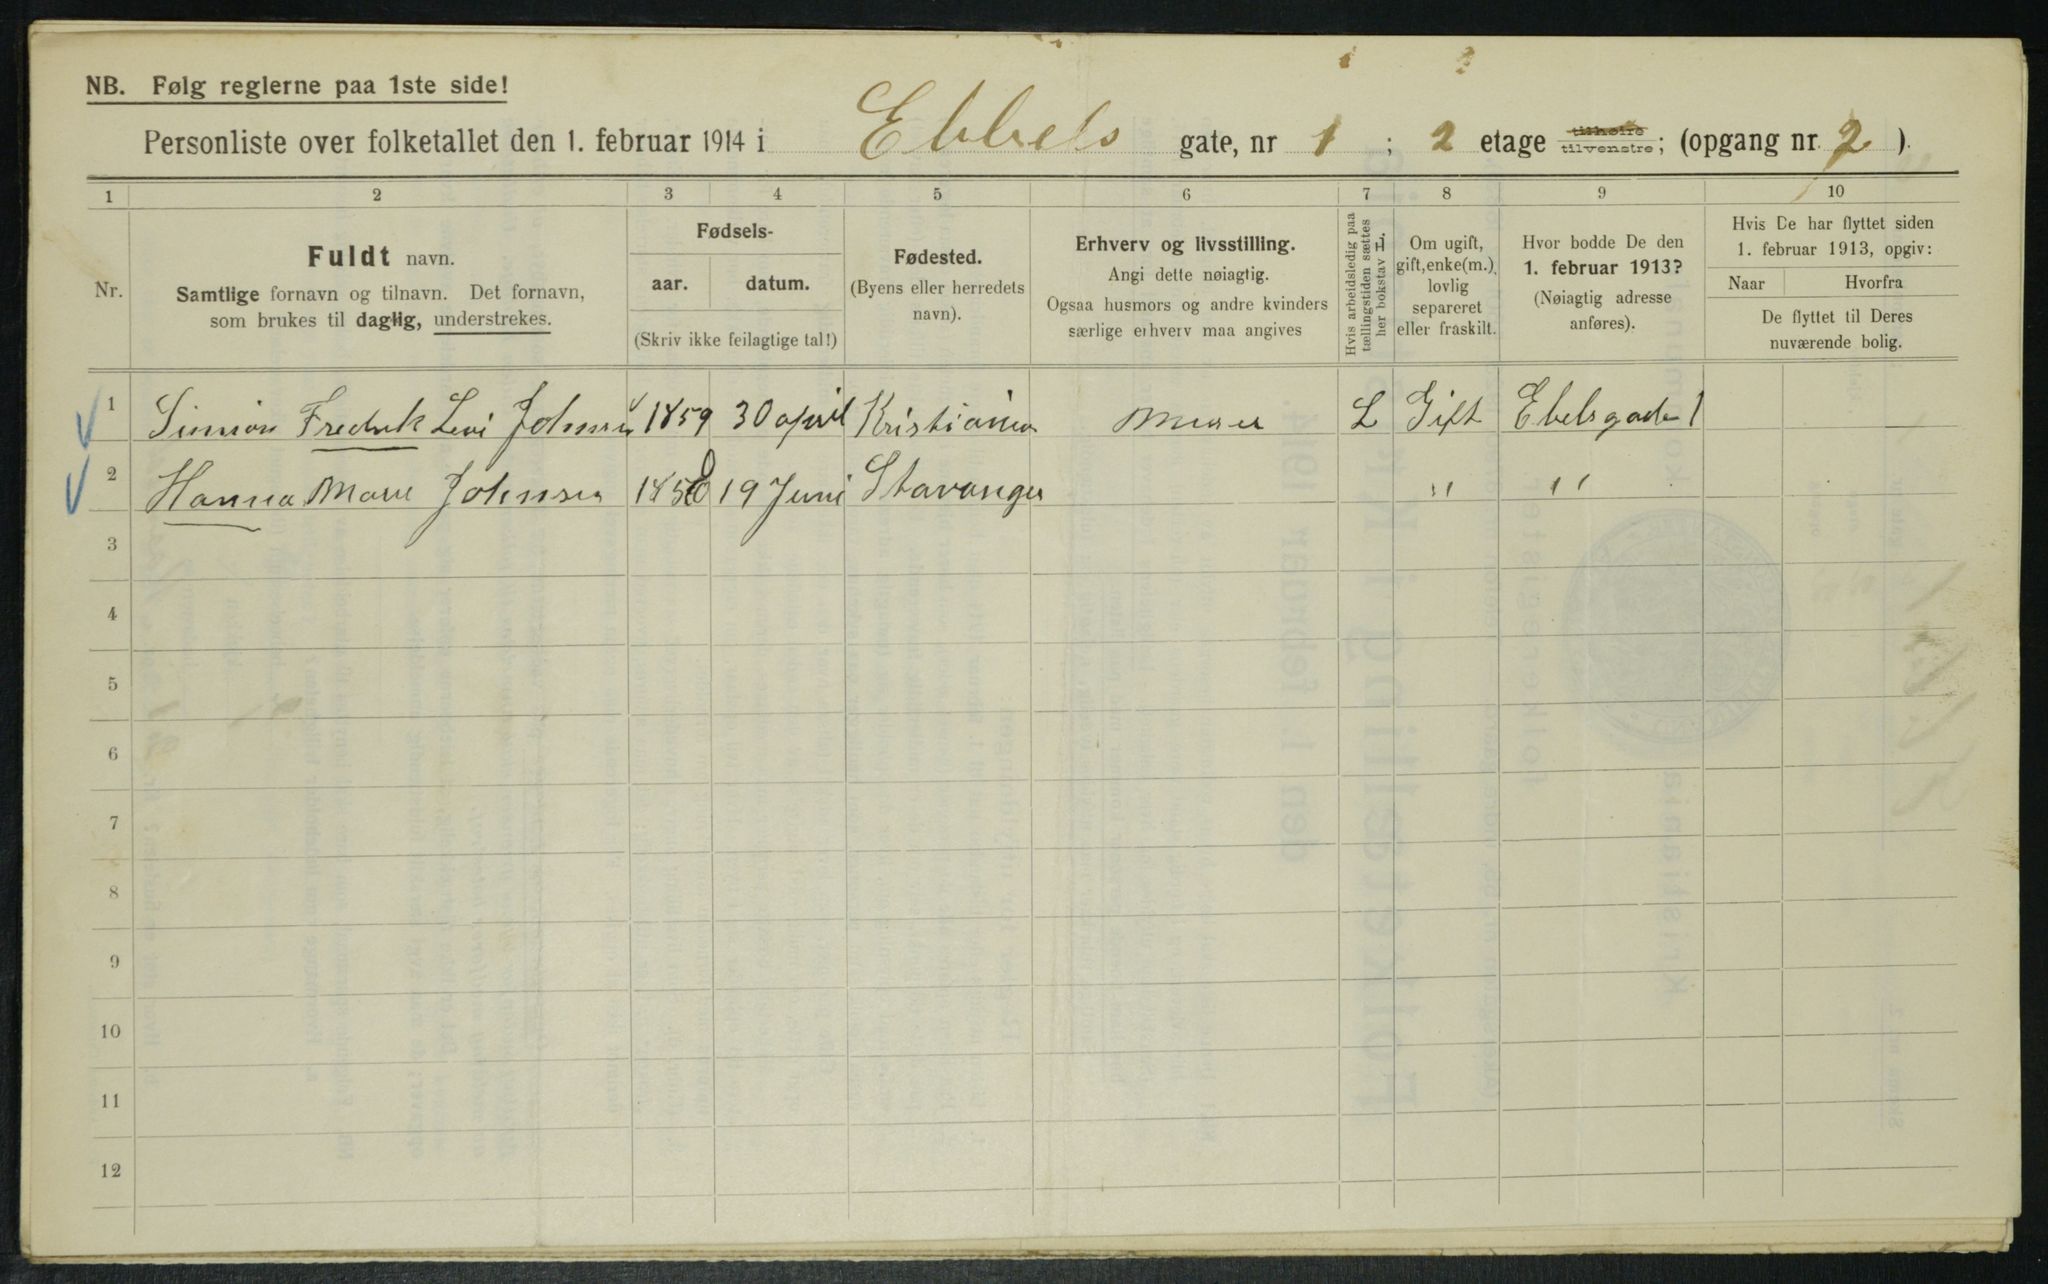 NB. Følg reglerne paa 1ste side!
Personliste over folketallet den 1. februar 1914 i Ebbels gate, nr 1 ; 2 etage tilhøire tilvenstre; (opgang nr. 2 ).
1 2 3 4 5 6 7 8 9 10
Nr.
Fuldt navn.
Samtlige fornavn og tilnavn. Det fornavn,
som brukes til daglig, understrekes.
Fødsels-
aar. datum.
(Skriv ikke feilagtige tal!)
Fødested.
(Byens eller herredets
navn).
Erhverv og livsstilling.
Angi dette nøiagtig.
Ogsaa husmors og andre kvinders
særlige erhverv maa angives
Hvis arbeidsledig paa
tællingstiden sættes
her bokstav L.
Om ugift,
gift, enke(m.),
lovlig
separeret
eller fraskilt.
Hvor bodde De den
1. februar 1913?
(Nøiagtig adresse
anføres).
Hvis De har flyttet siden
1. februar 1913, opgiv:
Naar Hvorfra
De flyttet til Deres
nuværende bolig.
1 Simion Fredrik Levi Johnsen 1859 30 april Kristiania Murer L Gift Ebelsgade 1
2 Hanna Marie Johnsen 1858 19 Juni Stavanger " "
3
4
5
6
7
8
9
10
11
12